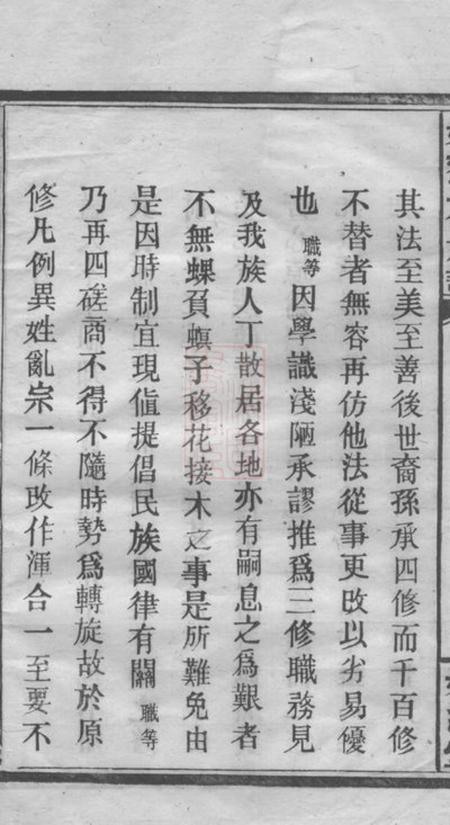 其法至美至善後世裔孫承四修而千百修
不替者無容再仿他法從事更改以劣易優
也職等因學識淺陋承謬推爲三修職務見
及我族人丁散居各地亦有嗣息之爲艱者
不無螺負螟子移花接木之事是所難免由
是因時制宜現值提倡民族國律有關職等
乃再四磋商不得不隨時勢爲轉旋故於原
修凡例異姓亂宗一條改作渾合一至要不